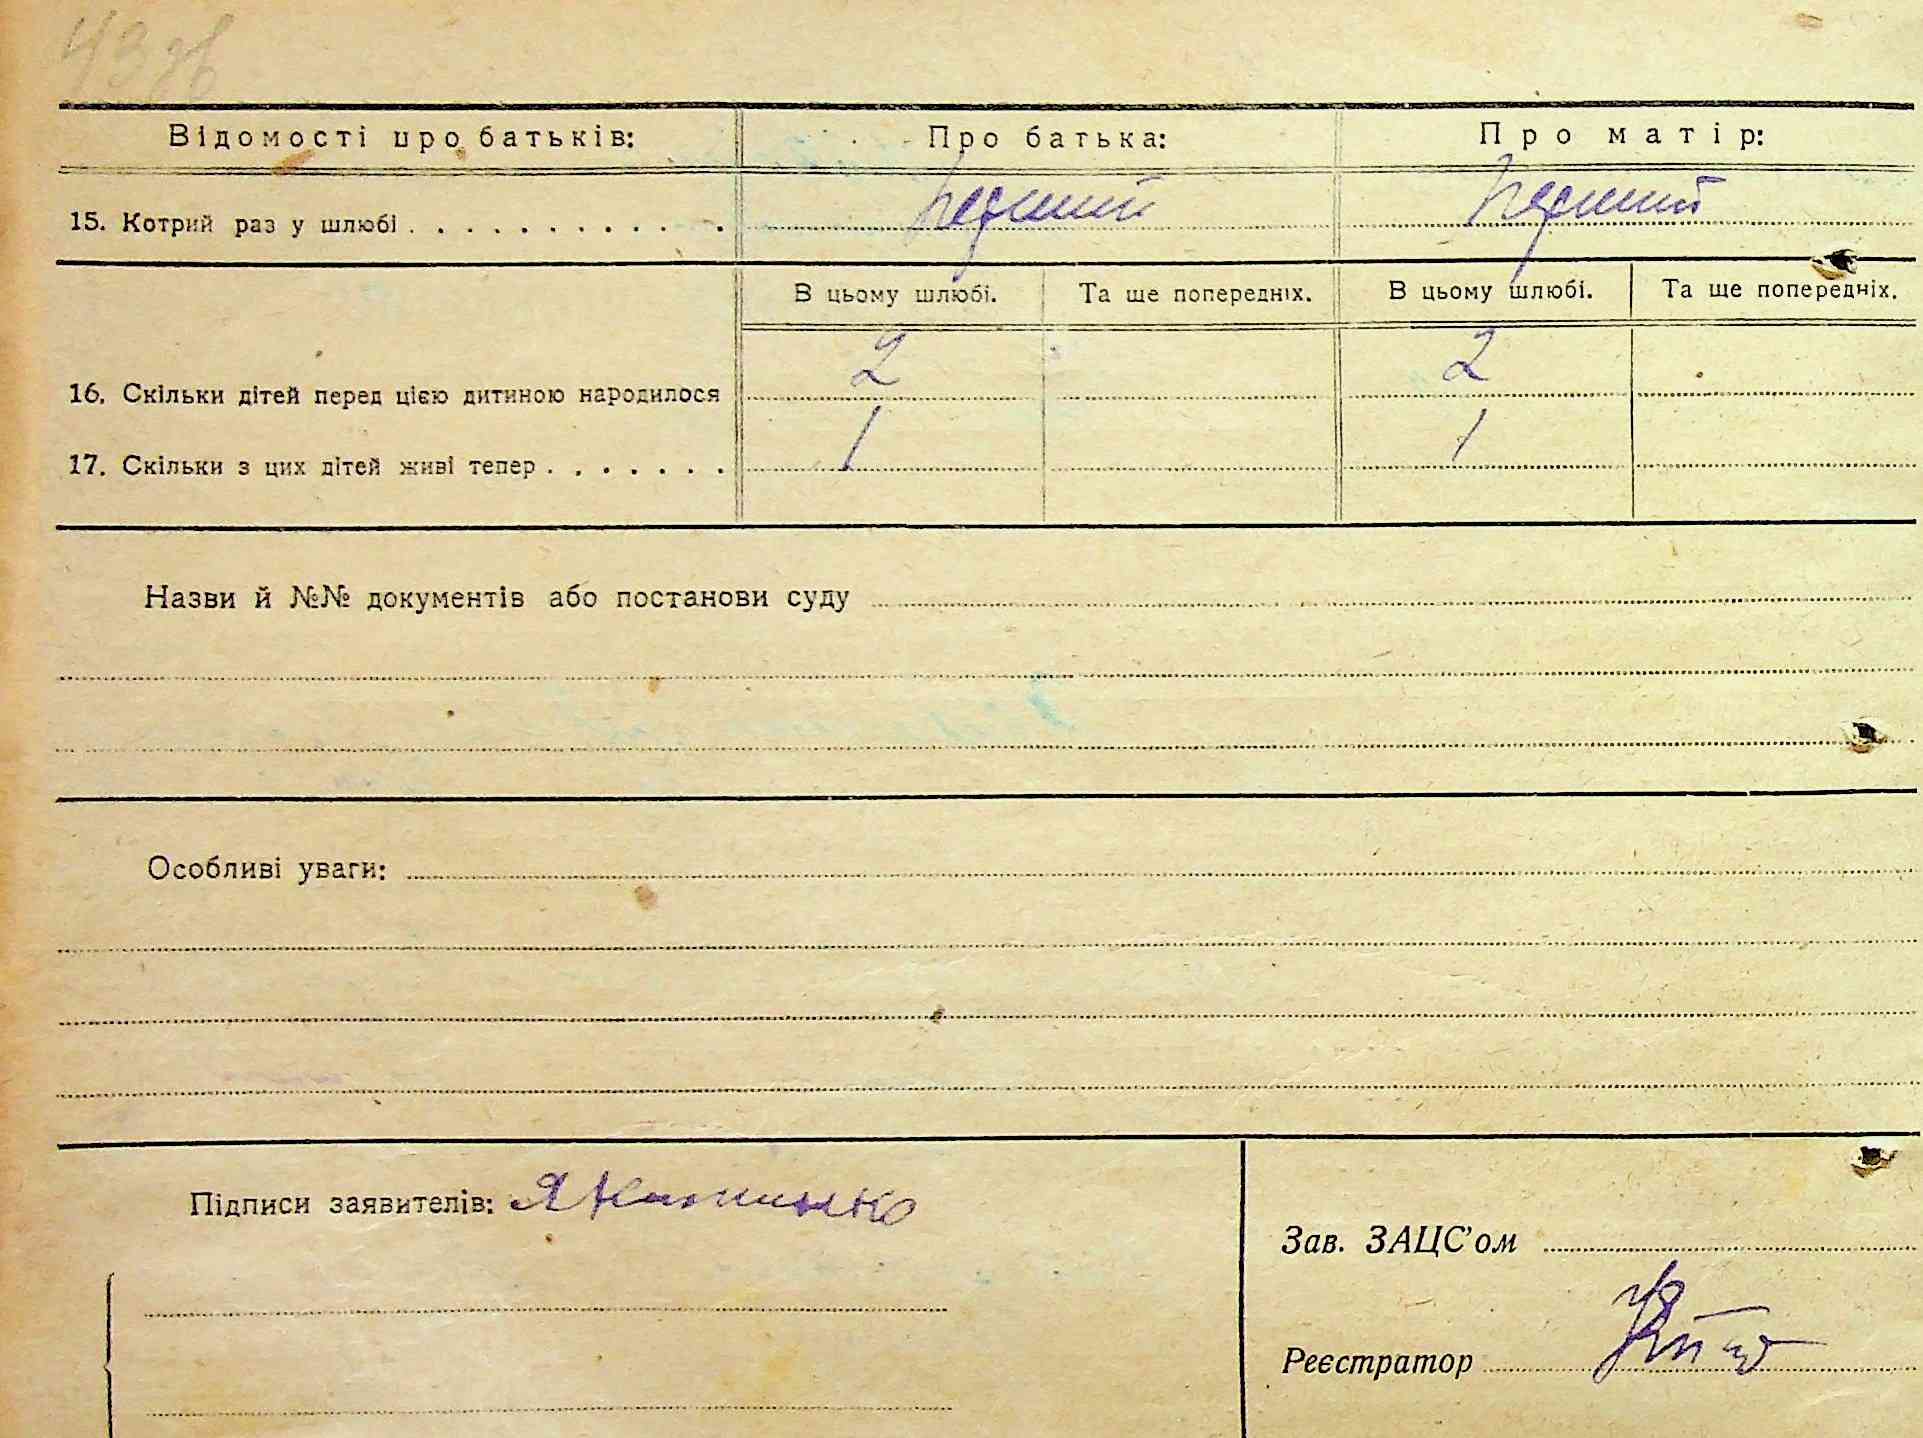 43зв
Відомості про батьків: Про батька: Про матір:
15. Котрий раз у шлюбі . . . . . . . . . . . . перший перший
В цьому шлюбі. Та ще попередніх. В цьому шлюбі. Та ще попередніх.
16. Скільки дітей перед цією дитиною народилося 2 2
17. Скільки з цих дітей живі тепер . . . . . . . 1 1
Назви й №№ документів або постанови суду
Особливі уваги:
Підписи заявителів:
Зав. ЗАЦС'ом
Реєстратор